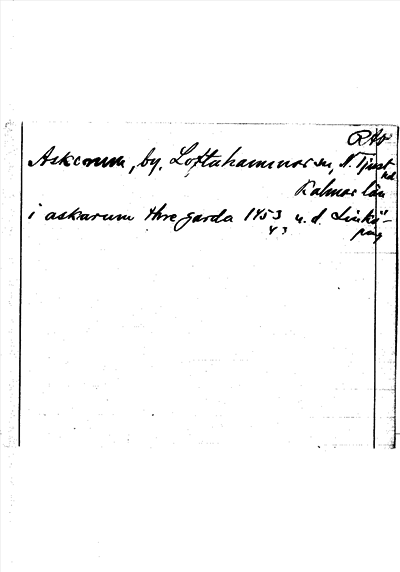 RAP
Askerum, by, Loftahammar sn, N. Tjust
hd
Kalmar län
i askarum thre garda 1453 u. d. Linkö-
43 ping